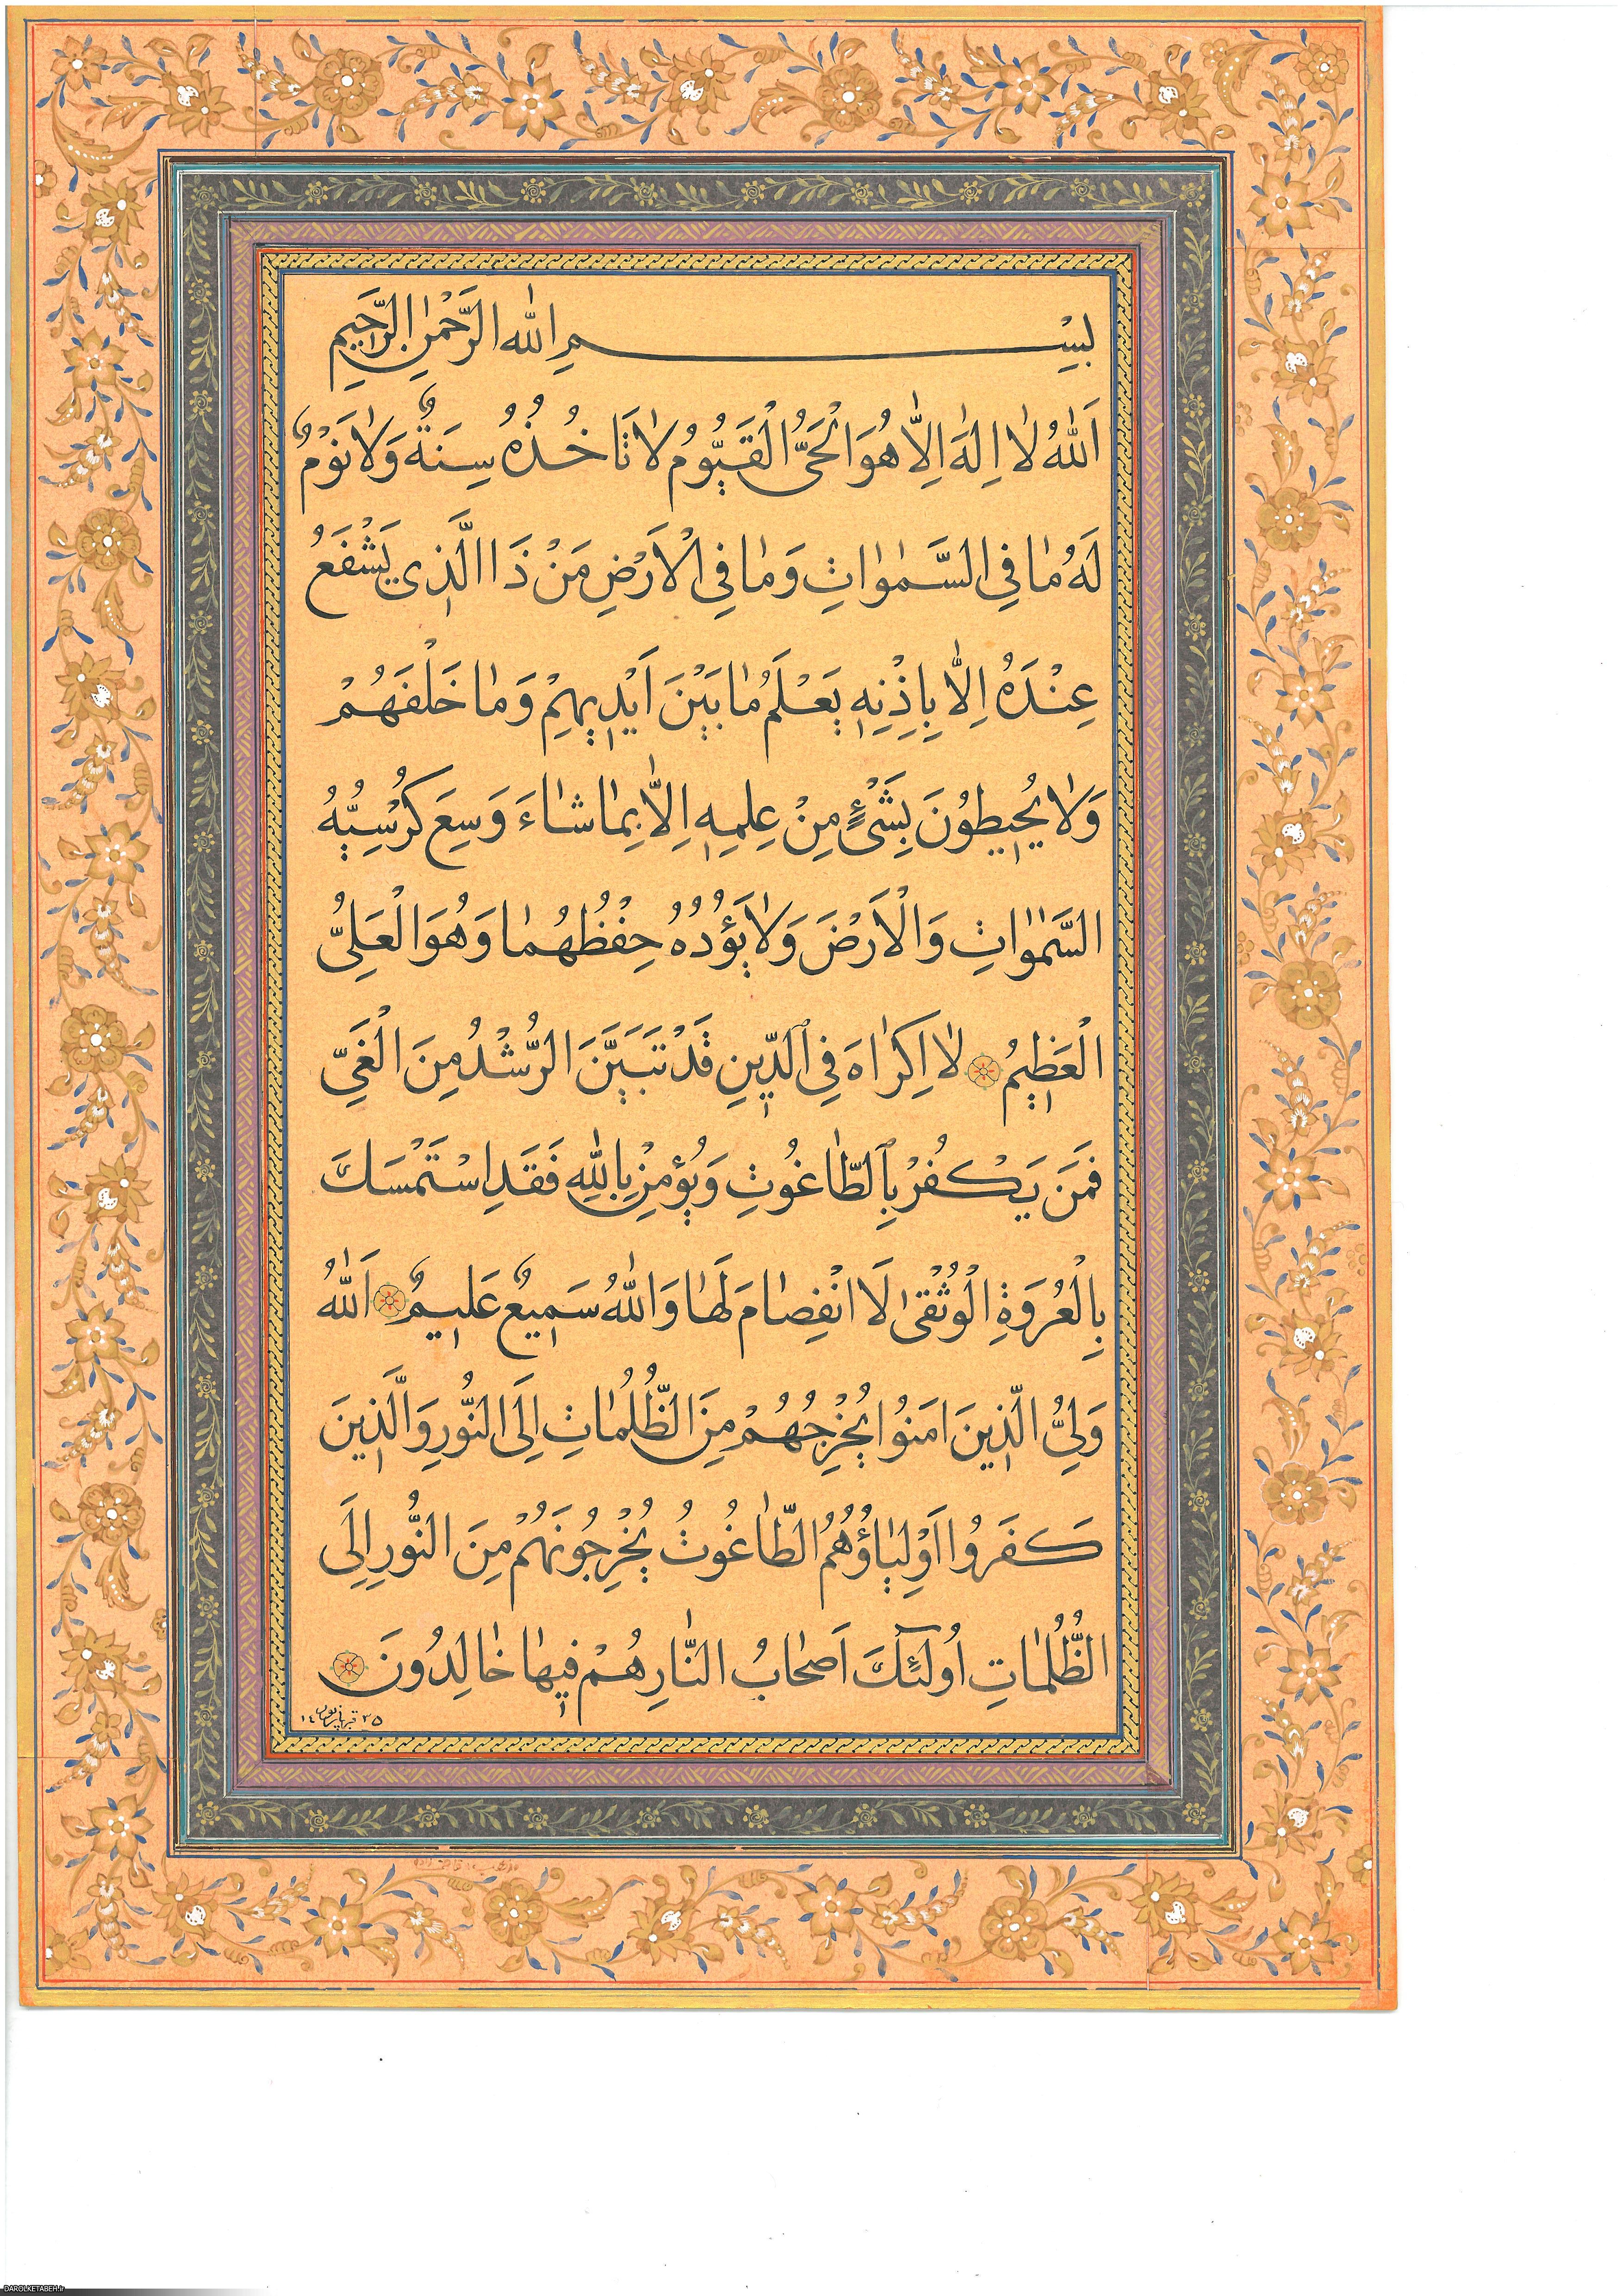 بِسْمِ اللهِ الرَّحْمٰنِ الرَّحِيمِ
اَللهُ لٰا اِلٰهَ اِلّٰا هُوَ الْحَيُّ الْقَيُّومُ لٰا تَأخُذُهُ سِنَةٌ وَلٰا نَوْمٌ
لَهُ مٰا فِي السَّمٰوٰاتِ وَمٰا فِي الْاَرْضِ مَنْ ذَا الَّذِي يَشْفَعُ
عِنْدَهُ اِلّٰا بِاِذْنِهِ يَعْلَمُ مٰا بَيْنَ اَيْدِيهِمْ وَمٰا خَلْفَهُمْ
وَلٰا يُحِيطُونَ بِشَيْءٍ مِنْ عِلمِهِ اِلّٰا بِمٰا شٰاءَ وَسِعَ كُرْسِيُّهُ
السَّمٰوٰاتِ وَالْاَرْضَ وَلٰا يَؤُدُهُ حِفْظُهُمٰا وَهُوَ الْعَلِيُّ
الْعَظِيمُ لٰا اِكرٰاهَ فِي الدِّينِ قَدْ تَبَيَّنَ الرُّشْدُ مِنَ الْغَيِّ
فَمَن يَكْفُرْ بِالطّٰاغُوتِ وَيُؤمِنْ بِاللهِ فَقَدِ اسْتَمْسَكَ
بِالْعُروَةِ الْوُثْقىٰ لَا انْفِصٰامَ لَهٰا وَاللهُ سَمِيعٌ عَلِيمٌ اَللهُ
وَلِيُّ الَّذِينَ امَنُوا يُخْرِجُهُمْ مِنَ الظُّلُمٰاتِ اِلَى النُّورِ وَالَّذِينَ
كَفَرُوا اَوْلِيٰاؤُهُمُ الطّٰاغُوتُ يُخْرِجُونَهُمْ مِنَ النُّورِ اِلَى
الظُّلُمٰاتِ اُولٰئِكَ اَصحٰابُ النّٰارِ هُمْ فِيهٰا خٰالِدُونَ
DAROLKETABEH.ir